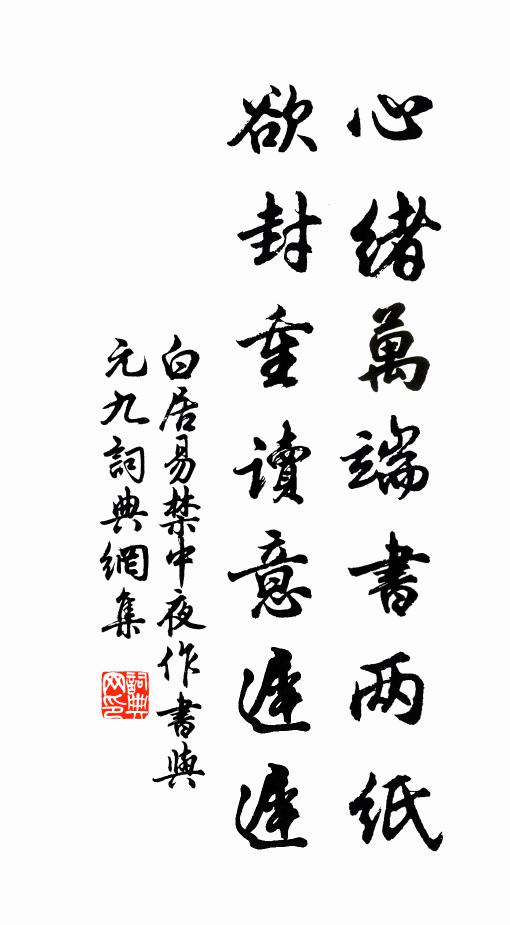 心緒萬端書两紙
欲封重讀意遲遲
白居易禁中夜作書與
元九詞典網集
詞典网印